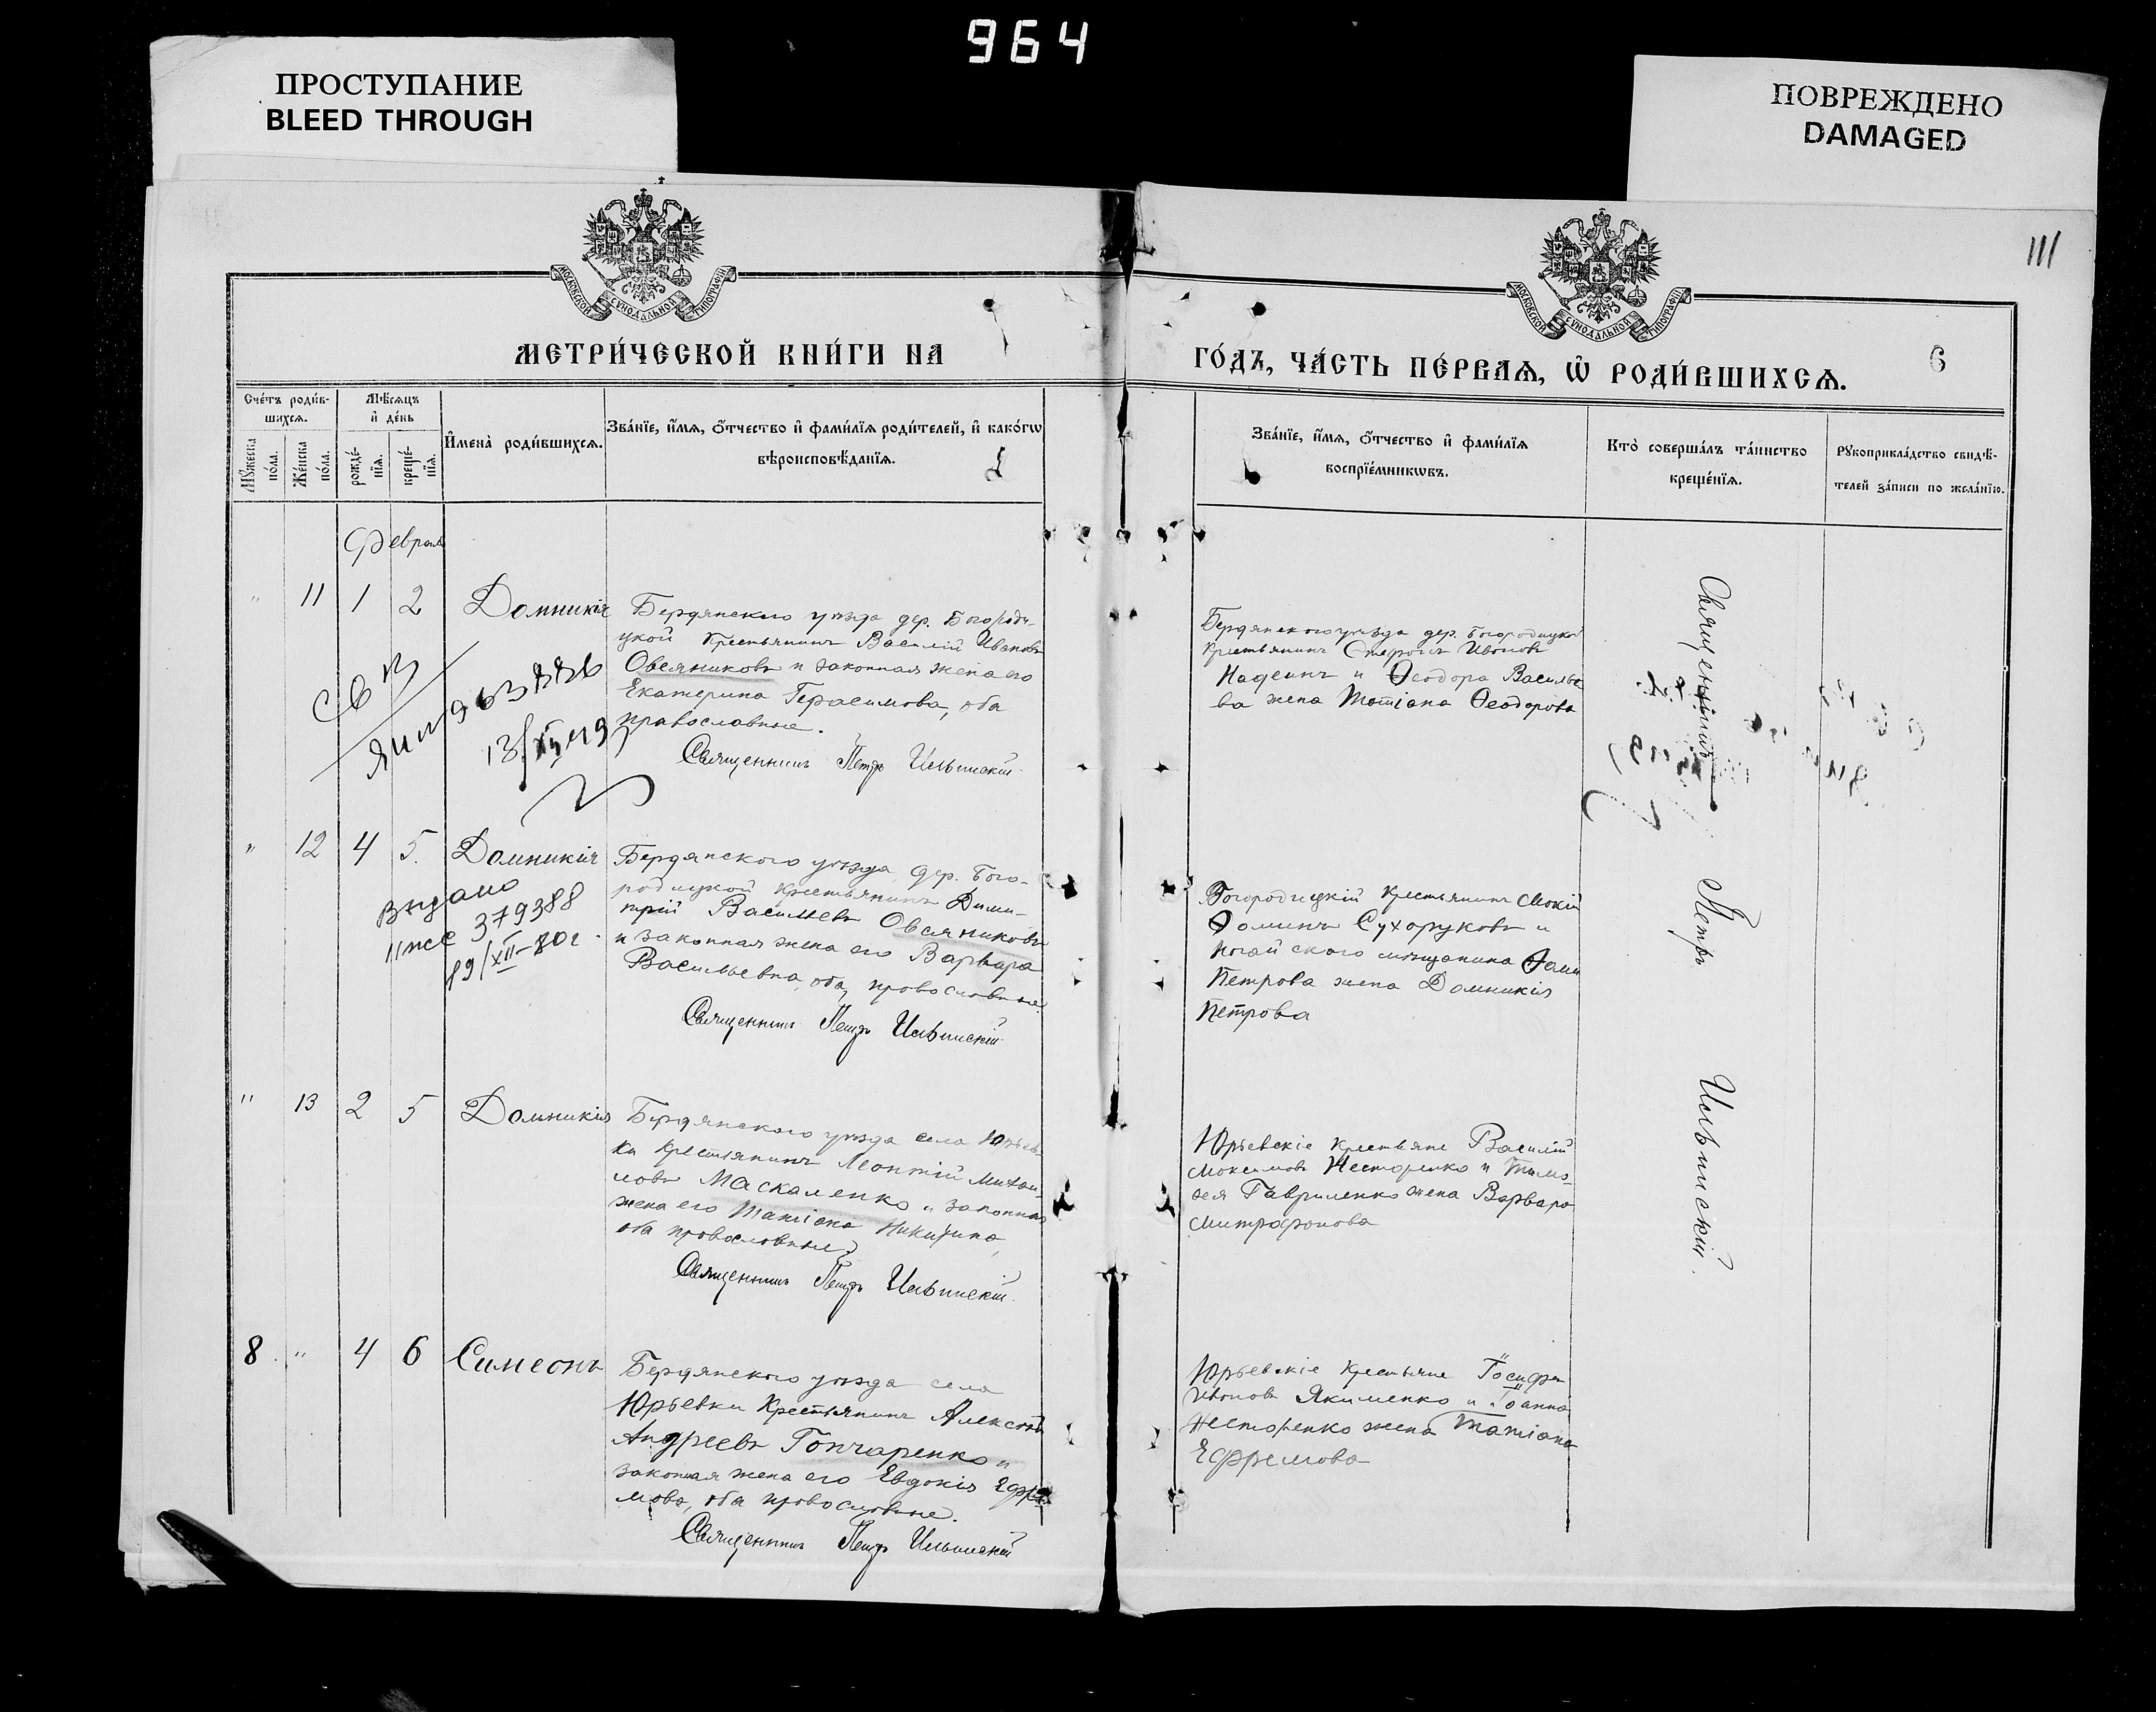 964
ПРОСТУПАНИЕ
BLEED THROUGH
ПОВРЕЖДЕНО
DAMAGED
111
МОСКОВСКОЙ СѴНОДАЛЬНОЙ ТИПОГРАФІИ
МОСКОВСКОЙ СѴНОДАЛЬНОЙ ТИПОГРАФІИ
МЕТРИ́ЧЕСКОЙ КНИ́ГИ НА
ГО́ДЪ, ЧА́СТЬ ПЕ́РВАѦ, Ѡ҆ РОДИ́ВШИХСѦ.
6
Сче́тъ роди́в-
шихсѧ.
Мꙋ́жеска по́ла.
Же́нска по́ла.
Мѣ́сѧцъ
и҆ де́нь
рожде́-
нїѧ.
креще́-
нїѧ.
И҆мена̀ роди́вшихсѧ.
Зва́нїе, и҆́мѧ, ѻ҆́тчество и҆ фами́лїѧ роди́телей, и҆ како́гѡ
вѣроисповѣ́данїѧ.
Зва́нїе, и҆́мѧ, ѻ҆́тчество и҆ фами́лїѧ
воспрїе́мникѡвъ.
Кто̀ соверша́лъ та́инство
креще́нїѧ.
Рꙋкоприкла́дство свидѣ́-
телей за́писи по жела́нїю.
Февраль
" 11 1 2 Домникія
Бердянскаго уѣзда дер. Богороди-
цкой крестьянинъ Василій Ивановъ
Овсяниковъ и законная жена его
Екатерина Герасимова, оба
православные.
Священникъ Петръ Ильинскій
Бердянскаго уѣзда дер. Богородицкой
крестьянинъ Ивановъ
Надеинъ и Ѳеодора Василье
ва жена Татіана Ѳеодорова
" 12 4 5. Домникія
выдано
379388
19/XII-80г.
Бердянскаго уѣзда дер. Бого-
родицкой крестьянинъ Дими-
трій Васильевъ Овсяниковъ
и законная жена его Варвара
Васильевна, оба православные.
Священникъ Петръ Ильинскій
Богородицкій крестьянинъ Мокій
Ѳоминъ Сухоруковъ и
Ногайскаго мѣщанина Ѳомы
Петрова жена Домникія
Петрова
" 13 2 5 Домникія
Бердянскаго уѣзда села Юрьев
ки крестьянинъ Леонтій Михаи-
ловъ Маскаленко и законная
жена его Татіана Никитина,
оба православные.
Священникъ Петръ Ильинскій
Юрьевскіе крестьяне Василій
Максимовъ Несторенко и Тимо-
ѳея Гавриленко жена Варвара
Митрофанова
8 " 4 6 Симеонъ
Бердянскаго уѣзда села
Юрьевки крестьянинъ Алексѣй
Андреевъ Гончаренко и
законная жена его Евдокія Ефре
мова, оба православные.
Священникъ Петръ Ильинскій
Юрьевскіе крестьяне Іосифъ
Ивановъ Якименко и Іоанна
Несторенко жена Татіана
Ефремова
Священникъ Петръ Ильинскій.